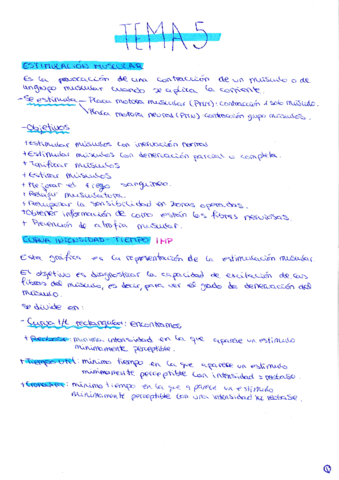 TEMA 5
ESTIMULACIÓN MUSCULAR
Es la provocación de una contracción de un músculo o de
un grupo muscular cuando se aplica la corriente.
- Se estimula - Placa motora muscular (PMM): contracción 1 solo músculo.
Placa motora neural (PMN) contracción grupo músculos.
- Objetivos
+ Estimular músculos con inervación normal
+ Estimular músculos con denervación parcial o completa.
+ Tonificar músculos
+ Estirar músculos
+ Mejorar el riego sanguíneo.
+ Relajar musculatura.
+ Recuperar la sensibilidad en zonas operadas.
+ Obtener información de como están las fibras nerviosas.
+ Prevención de atrofia muscular.
CURVA INTENSIDAD - TIEMPO IMP
Esta gráfica es la representación de la estimulación muscular
El objetivo es diagnosticar la capacidad de excitación de las
fibras del músculo, es decir, para ver el grado de denervación del
músculo.
Se divide en:
- Curva I/t rectangular: encontramos
+ Reobase: mínima intensidad en la que aparece un estímulo
mínimamente perceptible.
+ Tiempo útil: mínimo tiempo en la que aparece un estímulo
mínimamente perceptible con intensidad = reobase.
+ Cronaxia: mínimo tiempo en la que aparece un estímulo
mínimamente perceptible con una intensidad x2 reobase.